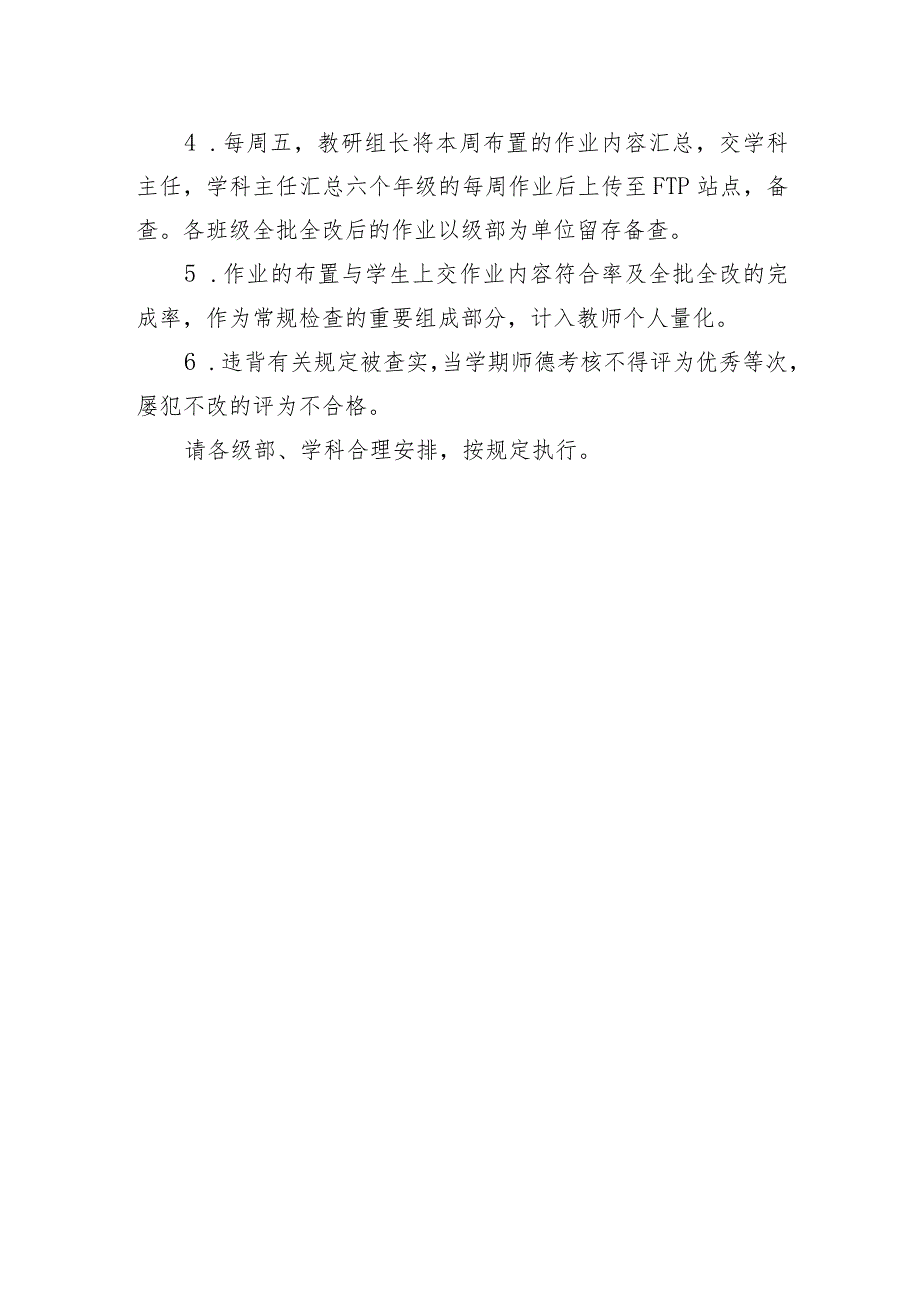 4 .每周五，教研组长将本周布置的作业内容汇总，交学科
主任，学科主任汇总六个年级的每周作业后上传至 FTP 站点，备
查。各班级全批全改后的作业以级部为单位留存备查。
5 .作业的布置与学生上交作业内容符合率及全批全改的完
成率，作为常规检查的重要组成部分，计入教师个人量化。
6 .违背有关规定被查实，当学期师德考核不得评为优秀等次，
屡犯不改的评为不合格。
请各级部、学科合理安排，按规定执行。